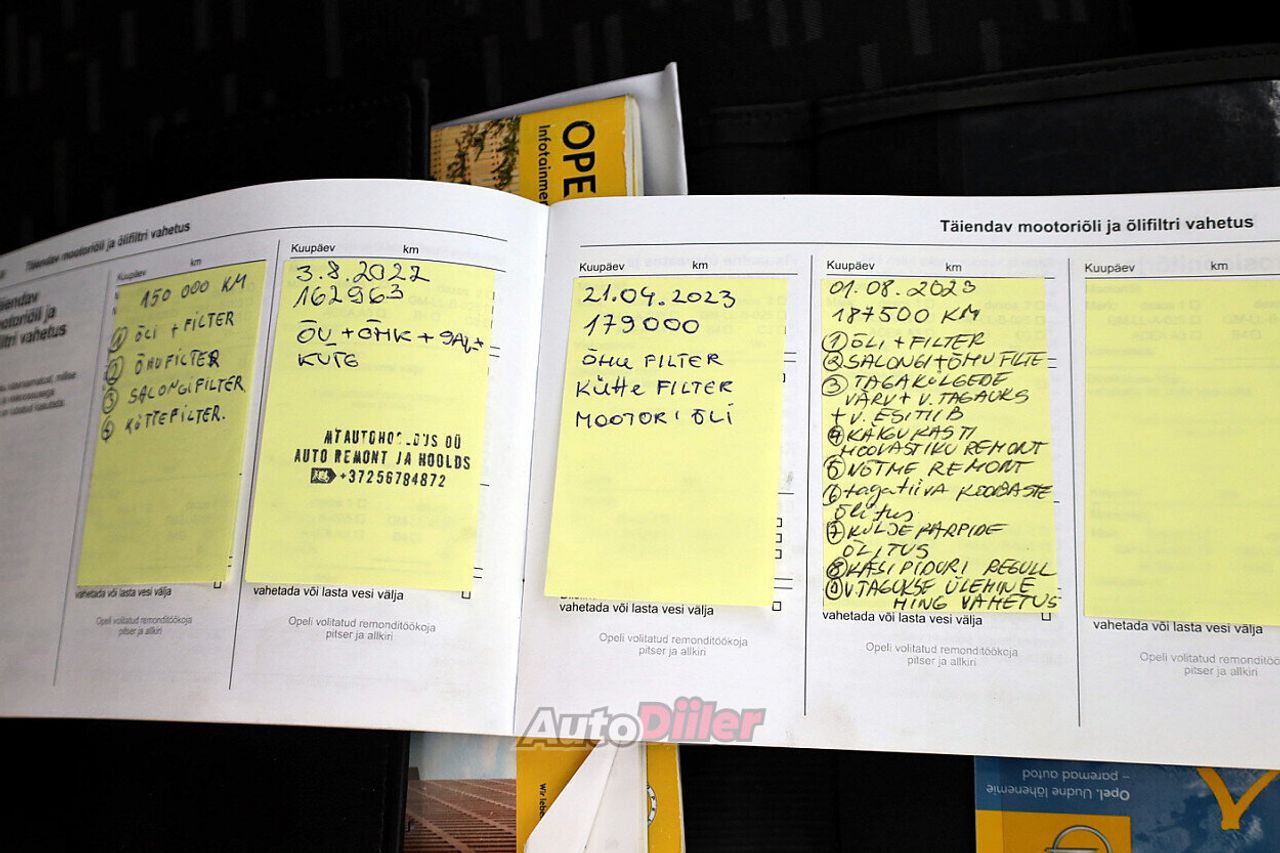 OPE
Infotainmen
Täiendav mootoriõli ja õlifiltri vahetus
Kuupäev km
150 000 KM
① ÕLI + FILTER
② ÕHUFILTER
③ SALONGIFILTER
④ KÜTTEFILTER.
vahetada või lasta vesi välja
Opeli volitatud remonditöökoja
pitser ja allkiri
Kuupäev km
3.8.2022
162963
KUTE
AUTO REMONT JA HOOLDS
+37256784872
vahetada või lasta vesi välja
Opeli volitatud remonditöökoja
pitser ja allkiri
Täiendav mootoriõli ja õlifiltri vahetus
Kuupäev km
21.04.2023
179000
ÕHU FILTER
KÜTTE FILTER
MOOTORI ÕLI
vahetada või lasta vesi välja
Opeli volitatud remonditöökoja
pitser ja allkiri
Kuupäev km
01.08.2023
187500 KM
① ÕLI + FILTER
② SALONGI+ÕHU FILTE
③ TAGAKÜLGEDE
VÄRV + V. TAGAUKS
+ V. ESITIIB
④ KÄIGUKASTI
HOOVASTIKU REMONT
⑤ VÕTME REMONT
⑥ tagatiiva KOOBASTE
õlitus
⑦ KÜLJE KARPIDE
ÕLITUS
⑧ KÄSIPIDURI REGULL
⑨ V. TAGUKSE ÜLEMINE
HING VAHETUS
vahetada või lasta vesi välja
Opeli volitatud remonditöökoja
pitser ja allkiri
Kuupäev km
vahetada või lasta vesi välja
Opeli volitatud remonditöö
pitser ja allkiri
AutoDiiler
Wir lebe
Opel. Uudne lähenemie
– paremad autod